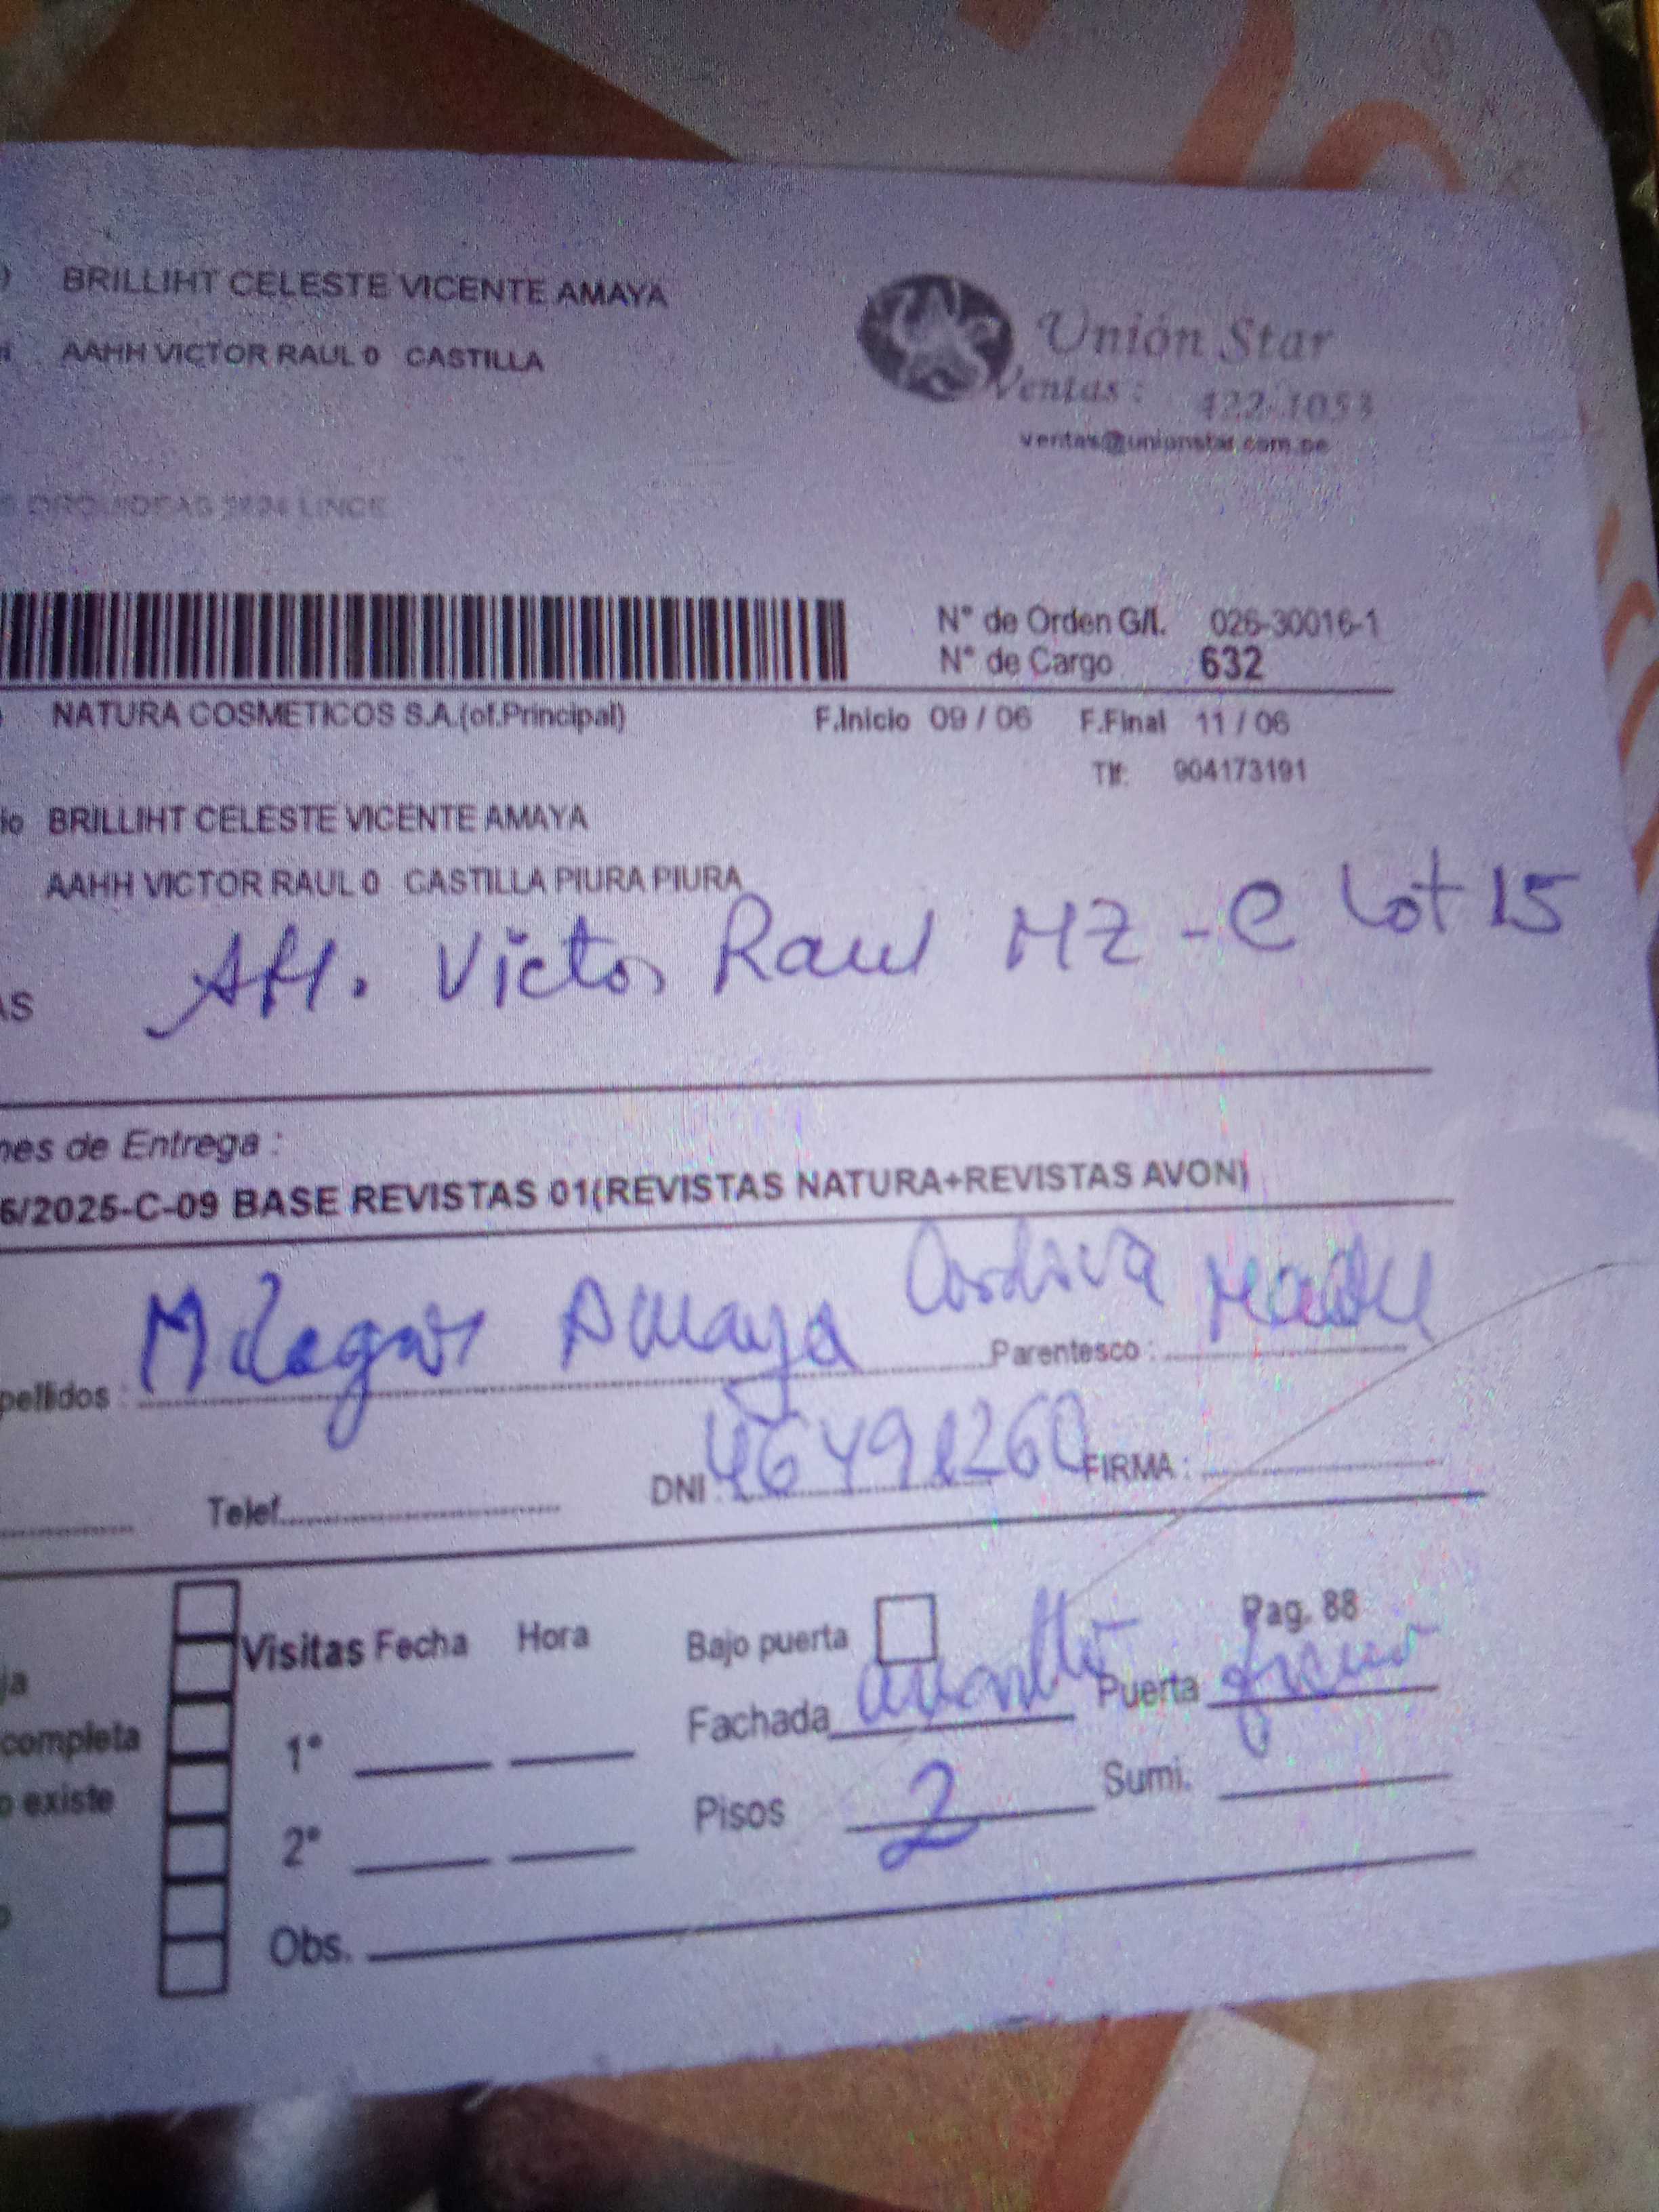 BRILLIHT CELESTE VICENTE AMAYA
AAHH VICTOR RAUL 0 CASTILLA
Unión Star
Ventas : 422-1053
ventas@unionstar.com.pe
ORQUIDEAS LINCE
N° de Orden G/L. 026-30016-1
N° de Cargo 632
NATURA COSMETICOS S.A.(of.Principal) F.Inicio 09 / 06 F.Final 11 / 06
Tlf: 904173191
io BRILLIHT CELESTE VICENTE AMAYA
AAHH VICTOR RAUL 0 CASTILLA PIURA PIURA
AH. Victor Raul MZ - C Lot 15
AS
nes de Entrega :
6/2025-C-09 BASE REVISTAS 01(REVISTAS NATURA+REVISTAS AVON)
pellidos : Milagros Amaya Cordova Parentesco : Madre
Telef. DNI FIRMA :
Visitas Fecha Hora Bajo puerta Pag. 88
ja
Fachada Puerta
completa
1°
o existe
Pisos 2 Sumi.
2°
Obs.